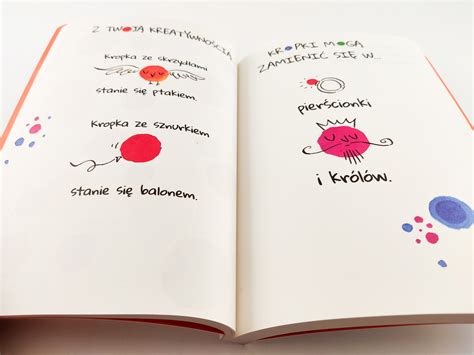 Z TWOJĄ KREATYWNOŚCIĄ
Kropka ze skrzydłami
stanie się ptakiem.
Kropka ze sznurkiem
stanie się balonem.
KROPKI MOGĄ
ZAMIENIĆ SIĘ W...
pierścionki
i królów.